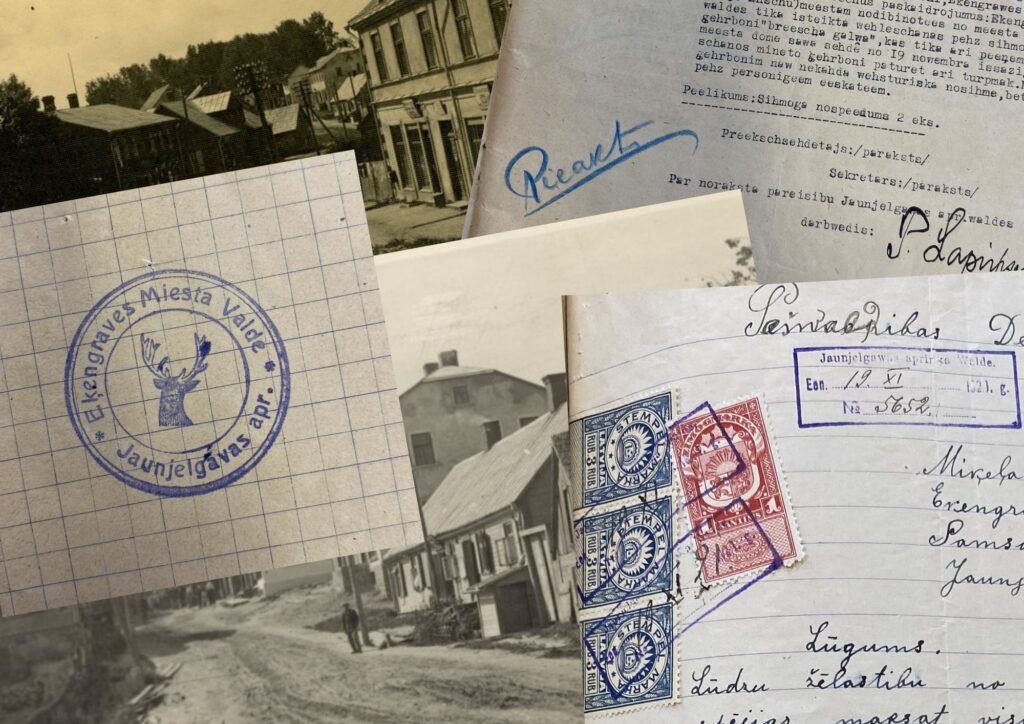 paskaidrojumus:Ekengrawes
meestam nodibinotees no meesta
waldes tika isteikta wehleschanas pehz sihmo
gehrboni"breescha galwa",kas tika ari peenem
meesta dome sawa sehdê no 19 novembra issazi
schanos mineto gehrboni paturet ari turpmak.M
gehrbonim naw nekahda wehsturiska nosihme,bet
pehz personigeem eeskateem.
Peelikums:Sihmoga nospeedums 2 eks.
Preekschsehdetajs:/paraksts/
Sekretars:/paraksts/
Par noraksta pareisibu Jaunjelgawas apr.waldes
darbwedis:
Pieakt.
* Eķengraves Miesta Valde *
Jaunjelgavas apr.
De
Jaunjelgawas apriņķa Walde.
Een. 19. XI 1921. g.
№ 5652.
STEMPEL MARKA
RUB. 3 RUB.
STEMPEL MARKA
RUB. 3 RUB.
STEMPEL MARKA
RUB. 3 RUB.
1
Miķeļa
Lūgums.
Lūdzu žēlastibu no
maksat vis